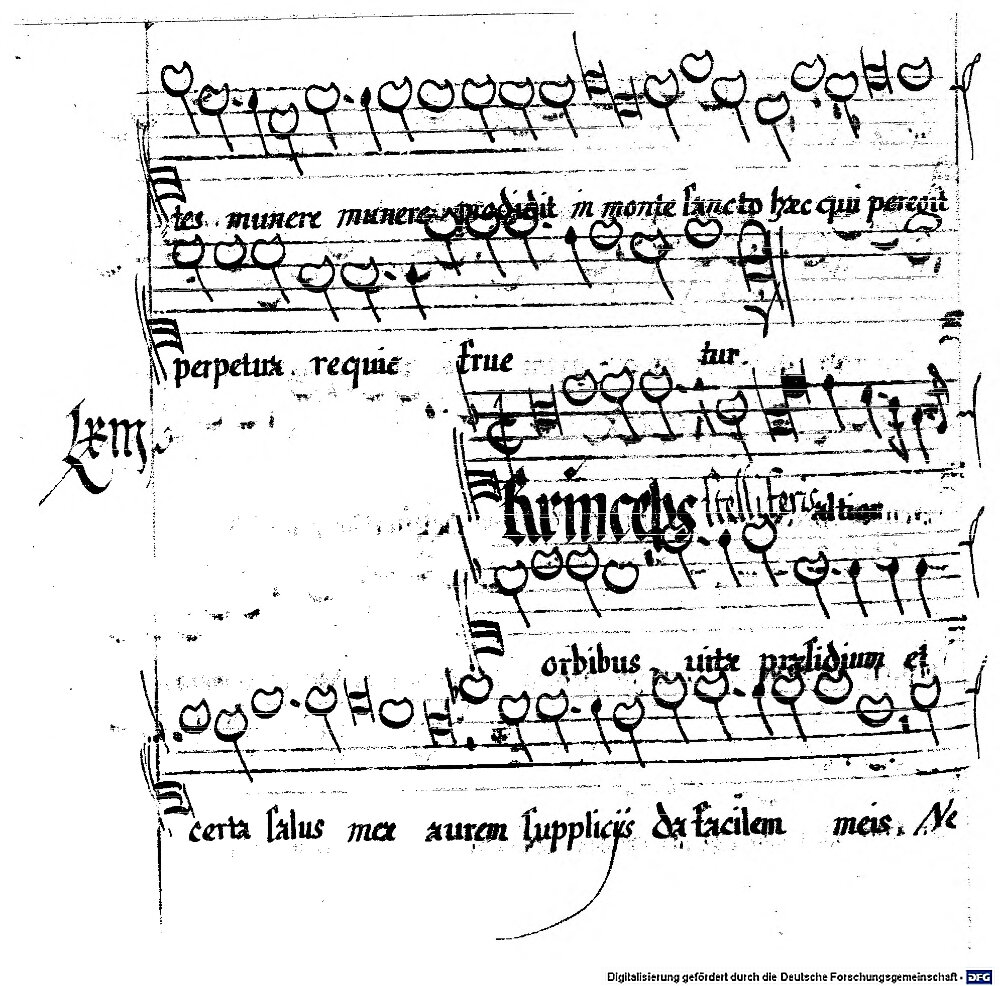 tes munere munere prodigit in monte sancto hæc qui peregit
perpetua requie frue tur.
Lxiij
Princeps stelliferis altior
orbibus vitæ præsidium et
certa salus meæ aurem supplicijs da facilem meis. Ne
Digitalisierung gefördert durch die Deutsche Forschungsgemeinschaft - DFG